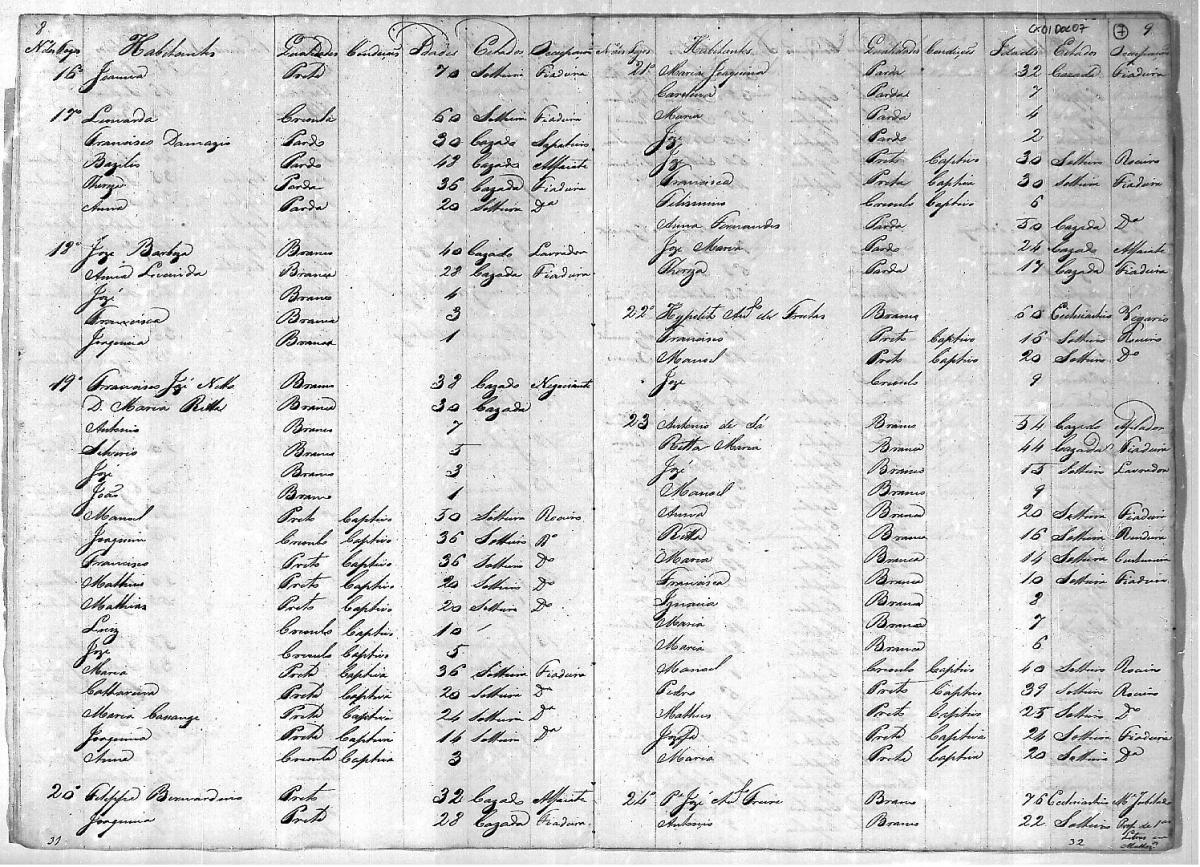 8
N. dos Fogos Habitantes Qualidades Condição Idades Estados Ocupação
16º Joanna Preta 70 Solteira Fiadeira
17º Leonarda Crioula 60 Solteira Fiadeira
Francisco Damazio Pardo 30 Cazado Sapateiro
Bazilio Pardo 42 Cazado Alfaiate
Thereza Parda 36 Cazada Fiadeira
Anna Parda 20 Solteira Dª
18º Joze Barboza Branco 40 Cazado Lavrador
Anna Lucinda Branca 28 Cazada Fiadeira
José Branco 4
Francisca Branca 3
Joaquina Branca 1
19º Francisco José Netto Branco 38 Cazado Negociante
D. Maria Ritta Branca 30 Cazada
Antonio Branco 7
Silverio Branco 5
José Branco 3
João Branco 1
Manoel Preto Captivo 50 Solteiro Roceiro
Joaquim Crioulo Captivo 36 Solteiro Dº
Francisco Preto Captivo 36 Solteiro Dº
Matheus Preto Captivo 20 Solteiro Dº
Mathias Preto Captivo 20 Solteiro Dº
Luiz Crioulo Captivo 10
Joze Crioulo Captivo 5
Maria Preta Captiva 36 Solteira Fiadeira
Catharina Preta Captiva 20 Solteira Dª
Maria Cassange Preta Captiva 24 Solteira Dª
Joaquina Preta Captiva 14 Solteira Dª
Anna Crioula Captiva 3
20º Felippe Bernardino Preto 32 Cazado Alfaiate
Joaquina Preta 28 Cazada Fiadeira
31
CX01 Doc07
7 9
N. dos Fogos Habitantes Qualidades Condição Idades Estados Ocupação
21º Maria Joaquina Parda 32 Cazada Fiadeira
Carolina Parda 7
Maria Parda 4
Joze Pardo 2
Joze Preto Captivo 30 Solteiro Roceiro
Francisca Preta Captiva 30 Solteira Fiadeira
Felismino Crioulo Captivo 6
Anna Fernandes Parda 50 Cazada Dª
Joze Maria Pardo 24 Cazado Alfaiate
Thereza Parda 17 Cazada Fiadeira
22º Hypolito de Freitas Branco 60 Ecclesiastico Vegario
Francisco Preto Captivo 16 Solteiro Roceiro
Manoel Preto Captivo 20 Solteiro Dº
Joze Crioulo 9
23 Antonio de Sá Branco 54 Cazado
Ritta Maria Branca 44 Cazada Fiadeira
José Branco 15 Solteiro Lavrador
Manoel Branco 9
Anna Branca 20 Solteira Fiadeira
Ritta Branca 16 Solteira Rendeira
Maria Branca 14 Solteira Custureira
Francisca Branca 10 Solteira Fiadeira
Ignacia Branca 8
Maria Branca 7
Maria Branca 6
Manoel Crioulo Captivo 40 Solteiro Roceiro
Pedro Preto Captivo 39 Solteiro Roceiro
Matheus Preto Captivo 25 Solteiro Dº
Jozefa Preta Captiva 24 Solteira Fiadeira
Maria Preta Captiva 20 Solteira Dª
24º Pe José Freire Branco 76 Ecclesiastico
Antonio Branco 22 Solteiro Prof. de 1as
32